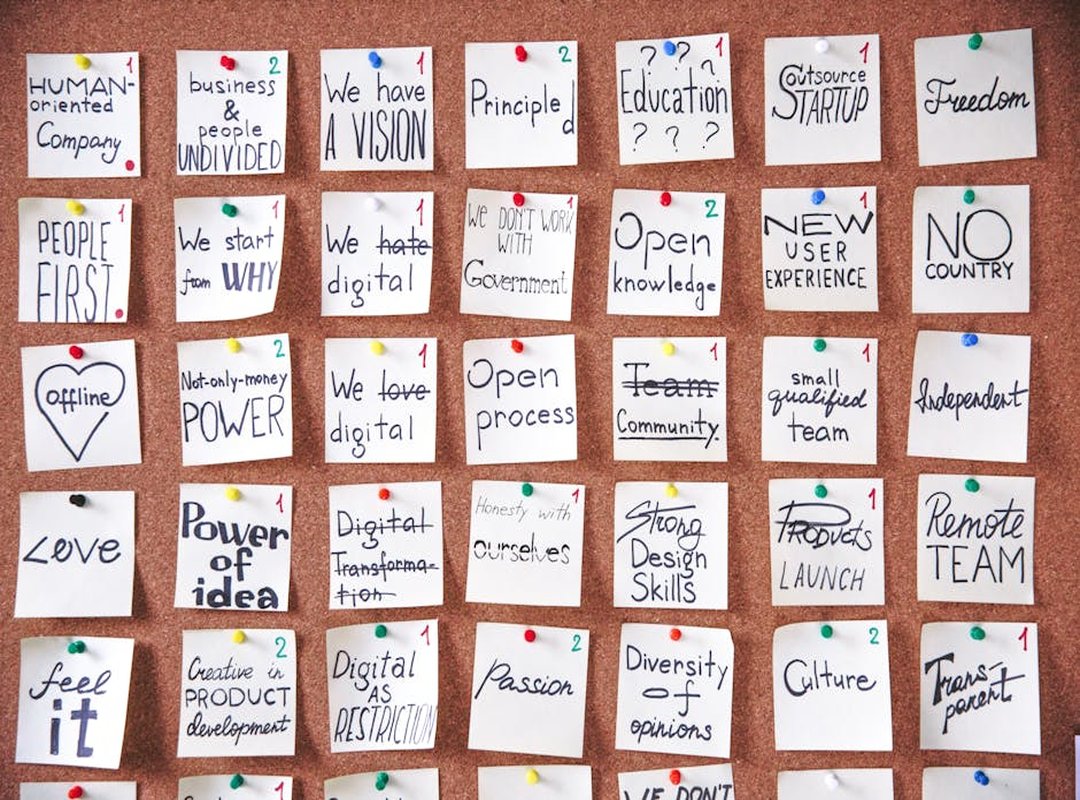 HUMAN-
oriented
Company
1
business
&
people
UNDIVIDED
2
We have
A VISION
1
Principled
2
? ? ?
Education
? ? ?
1
Outsource
STARTUP
1
Freedom
PEOPLE
FIRST.
1
We start
from WHY
1
We hate
digital
1
WE DON'T WORK
WITH
Government
1
Open
knowledge
2
NEW
USER
EXPERIENCE
1
NO
COUNTRY
offline
Not-only-money
POWER
2
We love
digital
1
Open
process
Team
Community.
1
small
qualified
team
1
Independent
Love
Power
of
idea
1
Digital
Transforma-
tion
Honesty with
ourselves
1
Strong
Design
Skills
PRODUCTS
LAUNCH
1
Remote
TEAM
feel
it
Creative in
PRODUCT
development
2
Digital
AS
RESTRICTION
1
Passion
2
Diversity
of
opinions
Culture
2
Trans-
parent
1
1
WE DON'T